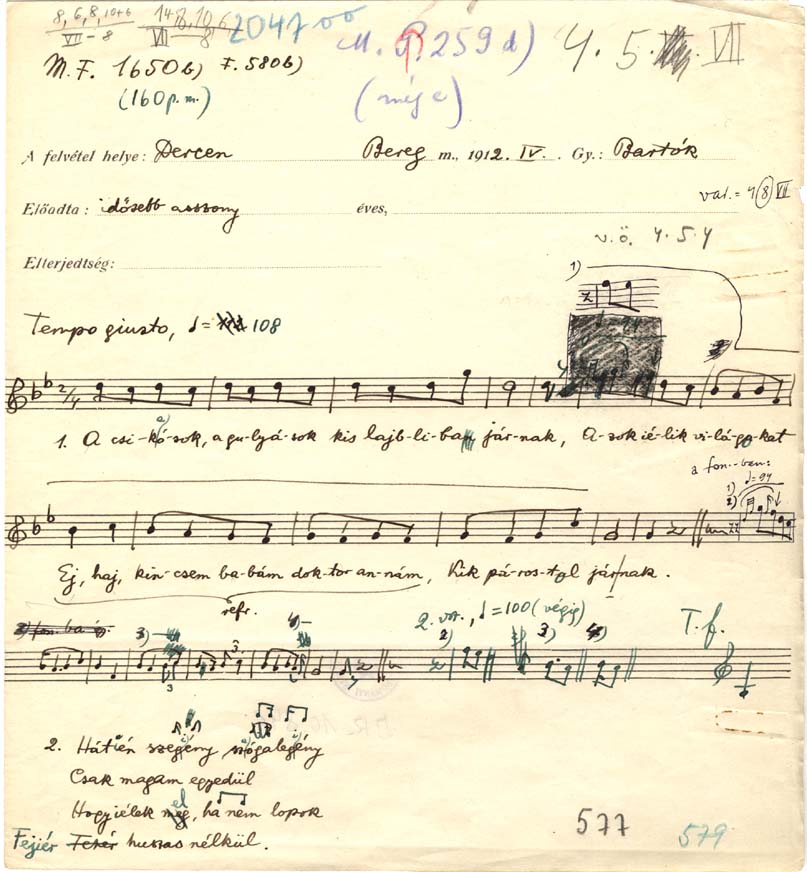 8, 6, 8, 10+6
VII - 8
14, 8, 10, 6
VII 8
204700
M. F. 1650b) F. 580b)
M. P. 259d)
4. 5. VII
(160 p. m.)
(még c)
A felvétel helye: Dercen Bereg m., 1912. IV. Gy.: Bartók
Előadta: idősebb asszony éves,
val. = 4 (8) VII
v.ö. 4. 5. 4
Elterjedtség:
1)
Tempo giusto, = 108
2/4
1. A csi-kó-sok, a gu-lyá-sok kis lajb-li-ban jár-nak, A-sok ié-lik vi-lá-go-kat
a fon.-ben:
1) = 94
2)
Ej, haj, kin-csem ba-bám dok-tor an-nám, Kik pá-ros-tol jár-nak.
refr.
2. vsz., = 100 (végig)
3) 4) 2) 3) 4)
3 3
T. f.
2. Hát ién szegény szógalegény
Csak magam egyedül
Hogy iélek el, ha nem lopok
Fejiér Fehér husras nélkül.
577 579